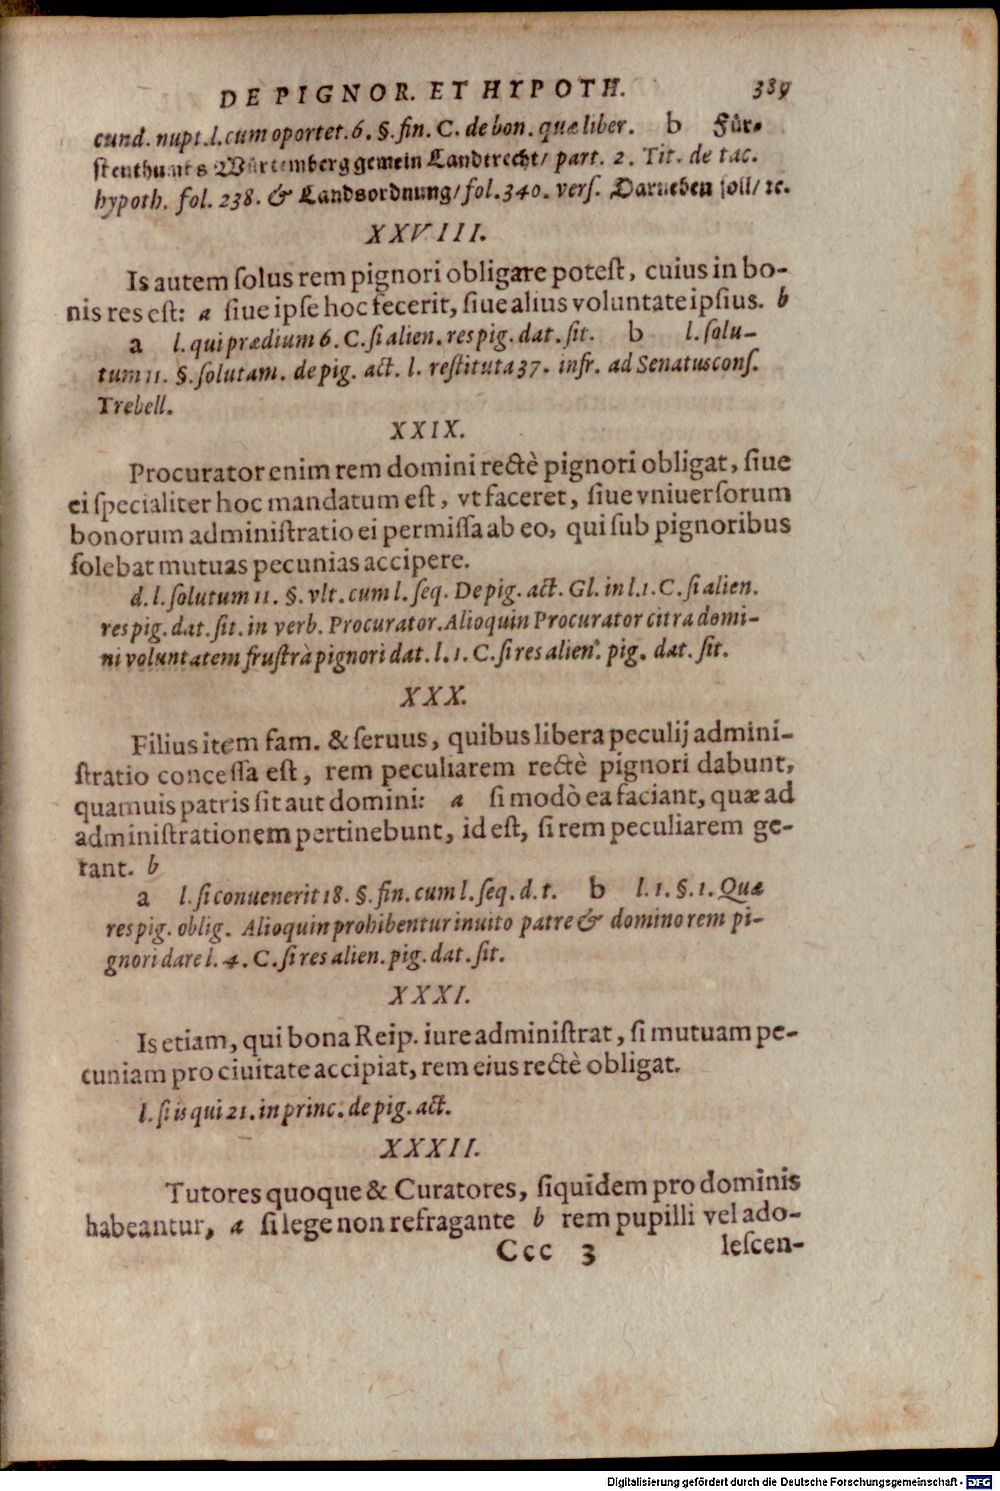 DE PIGNOR. ET HYPOTH. 389
cund. nupt. l. cum oportet. 6. §. fin. C. de bon. quæ liber. b Für-
stenthumbs Würtemberg gemein Landtrecht/ part. 2. Tit. de tac.
hypoth. fol. 238. & Landsordnung/ fol. 340. verſ. Darneben ſoll/ ꝛc.
XXVIII.
Is autem ſolus rem pignori obligare poteſt, cuius in bo-
nis res eſt: a ſiue ipſe hoc fecerit, ſiue alius voluntate ipſius. b
a l. qui prædium 6. C. ſi alien. res pig. dat. ſit. b l. ſolu-
tum 11. §. ſolutam. de pig. act. l. reſtituta 37. infr. ad Senatusconſ.
Trebell.
XXIX.
Procurator enim rem domini rectè pignori obligat, ſiue
ei ſpecialiter hoc mandatum eſt, vt faceret, ſiue vniuerſorum
bonorum adminiſtratio ei permiſſa ab eo, qui ſub pignoribus
ſolebat mutuas pecunias accipere.
d. l. ſolutum 11. §. vlt. cum l. ſeq. De pig. act. Gl. in l. 1. C. ſi alien.
res pig. dat. ſit. in verb. Procurator. Alioquin Procurator citra domi-
ni voluntatem fruſtrà pignori dat. l. 1. C. ſi res alien. pig. dat. ſit.
XXX.
Filius item fam. & ſeruus, quibus libera peculij admini-
ſtratio conceſſa eſt, rem peculiarem rectè pignori dabunt,
quamuis patris ſit aut domini: a ſi modò ea faciant, quæ ad
adminiſtrationem pertinebunt, id eſt, ſi rem peculiarem ge-
rant. b
a l. ſi conuenerit 18. §. fin. cum l. ſeq. d. t. b l. 1. §. 1. Quæ
res pig. oblig. Alioquin prohibentur inuito patre & domino rem pi-
gnori dare l. 4. C. ſi res alien. pig. dat. ſit.
XXXI.
Is etiam, qui bona Reip. iure adminiſtrat, ſi mutuam pe-
cuniam pro ciuitate accipiat, rem eius rectè obligat.
l. ſi is qui 21. in princ. de pig. act.
XXXII.
Tutores quoque & Curatores, ſiquidem pro dominis
habeantur, a ſi lege non refragante b rem pupilli vel ado-
Ccc 3 leſcen-
Digitalisierung gefördert durch die Deutsche Forschungsgemeinschaft - DFG